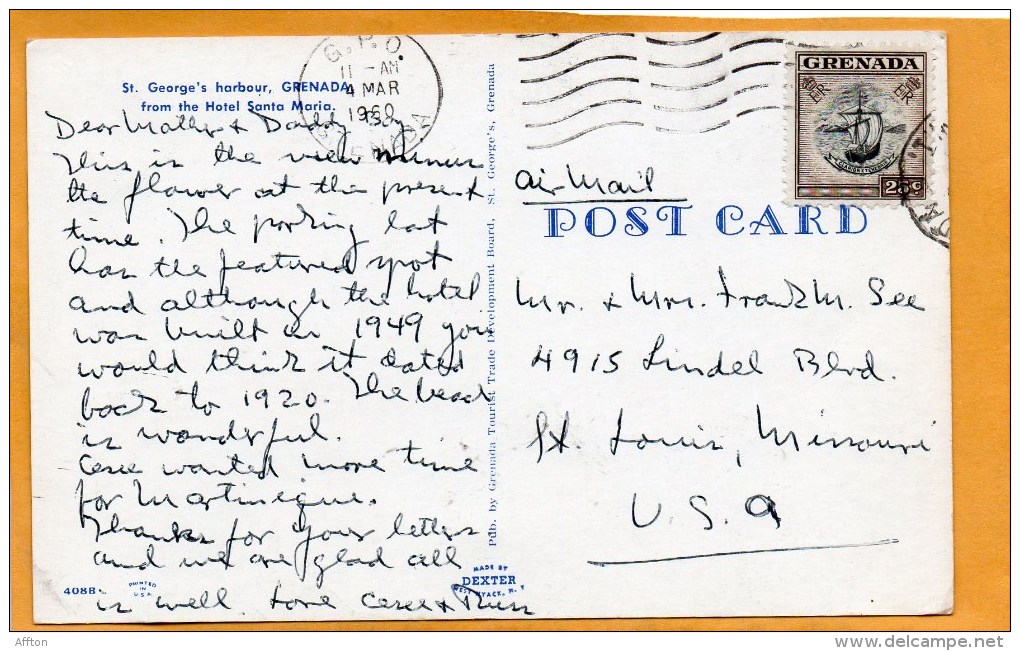 St. George's harbour, GRENADA,
from the Hotel Santa Maria.
Dear Mother & Daddy
This is the view minus
the flower at the present
time. The parking lot
has the featured spot
and although the hotel
was built in 1949 you
would think it dated
back to 1920. The beach
is wonderful.
wanted more time
for Martinique.
Thanks for your letters
and we are glad all
is well. Love & Russ
408B
PRINTED
IN
U.S.A.
Pub. by Grenada Tourist Trade Development Board, St. George's, Grenada
MADE BY
DEXTER
WEST NYACK, N.Y.
G.P.O.
11 - AM
4 MAR
1960
GRENADA
GRENADA
E R
E R
25c
Air Mail
POST CARD
Mr. & Mrs. Frank M. See
4915 Lindel Blvd.
St. Louis, Missouri
U.S.A
Affton
delcampe.net